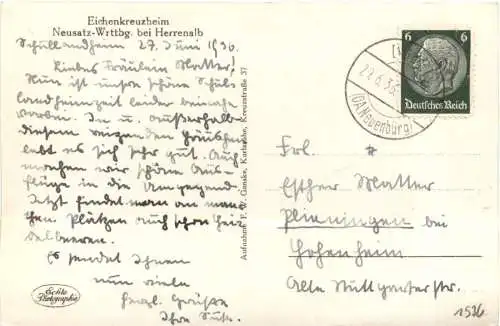 Eichenkreuzheim
Neusatz-Wrttbg. bei Herrenalb
Schullandheim 27. Juni 1936.
Liebes Fräulein Matter!
Nun ist unsre schöne Schul-
landheimzeit leider beinahe
vorbei. In u. außerhalb
diesem reizenden Häuschen
lebt es sich sehr gut. Auch
machen wir schöne Aus-
flüge in die Umgegend.
Jetzt findet man an man-
chen Plätzen auch schon Hei-
delbeeren.
Es sendet Ihnen
nun viele
herzl. Grüße
Ihre
Echte
Photographie
Aufnahme F. W. Karlsruhe, Kreuzstraße 37
6 6
Deutsches Reich
(OA Neuenburg)
Frl.
Esther Matter
Plieningen bei
Hohenheim
Alte Stuttgarterstr.
1536